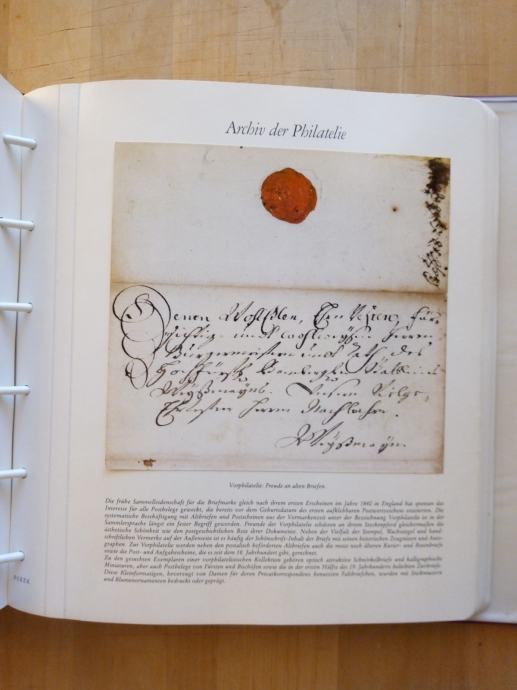 Archiv der Philatelie
Denen Wohl Edlen, Ehrn Vesten, für
und
Burgermeistern und Rath des
Unsern
Herrn Nachbahrn.
Vorphilatelie: Freude an alten Briefen.
Die frühe Sammelleidenschaft für die Briefmarke gleich nach ihrem ersten Erscheinen im Jahre 1840 in England hat spontan das
Interesse für alle Postbelege geweckt, die bereits vor dem Geburtsdatum des ersten aufklebbaren Postwertzeichens existierten. Die
systematische Beschäftigung mit Altbriefen und Postscheinen aus der Vormarkenzeit unter der Bezeichnung Vorphilatelie ist in der
Sammlersprache längst ein fester Begriff geworden. Freunde der Vorphilatelie schätzen an ihrem Steckenpferd gleichermaßen die
ästhetische Schönheit wie den postgeschichtlichen Reiz ihrer Dokumente. Neben der Vielfalt der Stempel, Wachssiegel und hand-
schriftlichen Vermerke auf der Außenseite ist es häufig der Schönschreib-Inhalt der Briefe mit seinen historischen Zeugnissen und Auto-
graphen. Zur Vorphilatelie werden neben den postalisch beförderten Altbriefen auch die meist noch älteren Kurier- und Botenbriefe
sowie die Post- und Aufgabescheine, die es seit dem 18. Jahrhundert gibt, gerechnet.
Zu den gesuchten Exemplaren einer vorphilatelistischen Kollektion gehören optisch attraktive Schnörkelbriefe und kalligraphische
Miniaturen, aber auch Postbelege von Fürsten und Bischöfen sowie die in der ersten Hälfte des 19. Jahrhunderts beliebten Zierbriefe.
Diese Kleinformatigen, bevorzugt von Damen für deren Privatkorrespondenz benutzten Faltbriefchen, wurden mit Stechmustern
und Blumenornamenten bedruckt oder geprägt.